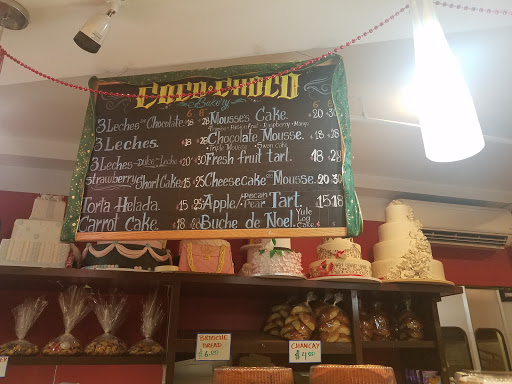 COCO-CHOCO
Bakery
6" 8"
3 Leches Chocolate. $18 $28
3 Leches. $18 $28
3 Leches-Dulce de Leche $20 $30
Strawberry Short Cake $15 $25
Torta Helada. $15 $25
Carrot Cake. $18 $28
6" 8"
Mousse's Cake. $20 $30
Passion Fruit - Raspberry - Mango
Chocolate Mousse. $18 $28
Triple Mousse
Fresh fruit tart. 18 $28
Cheesecake Mousse. 20 30
Apple/Pecan Pear/ Tart. 15 18
Buche de Noel. Yule Log Cake
BRIOCHE
BREAD
CHANCAY